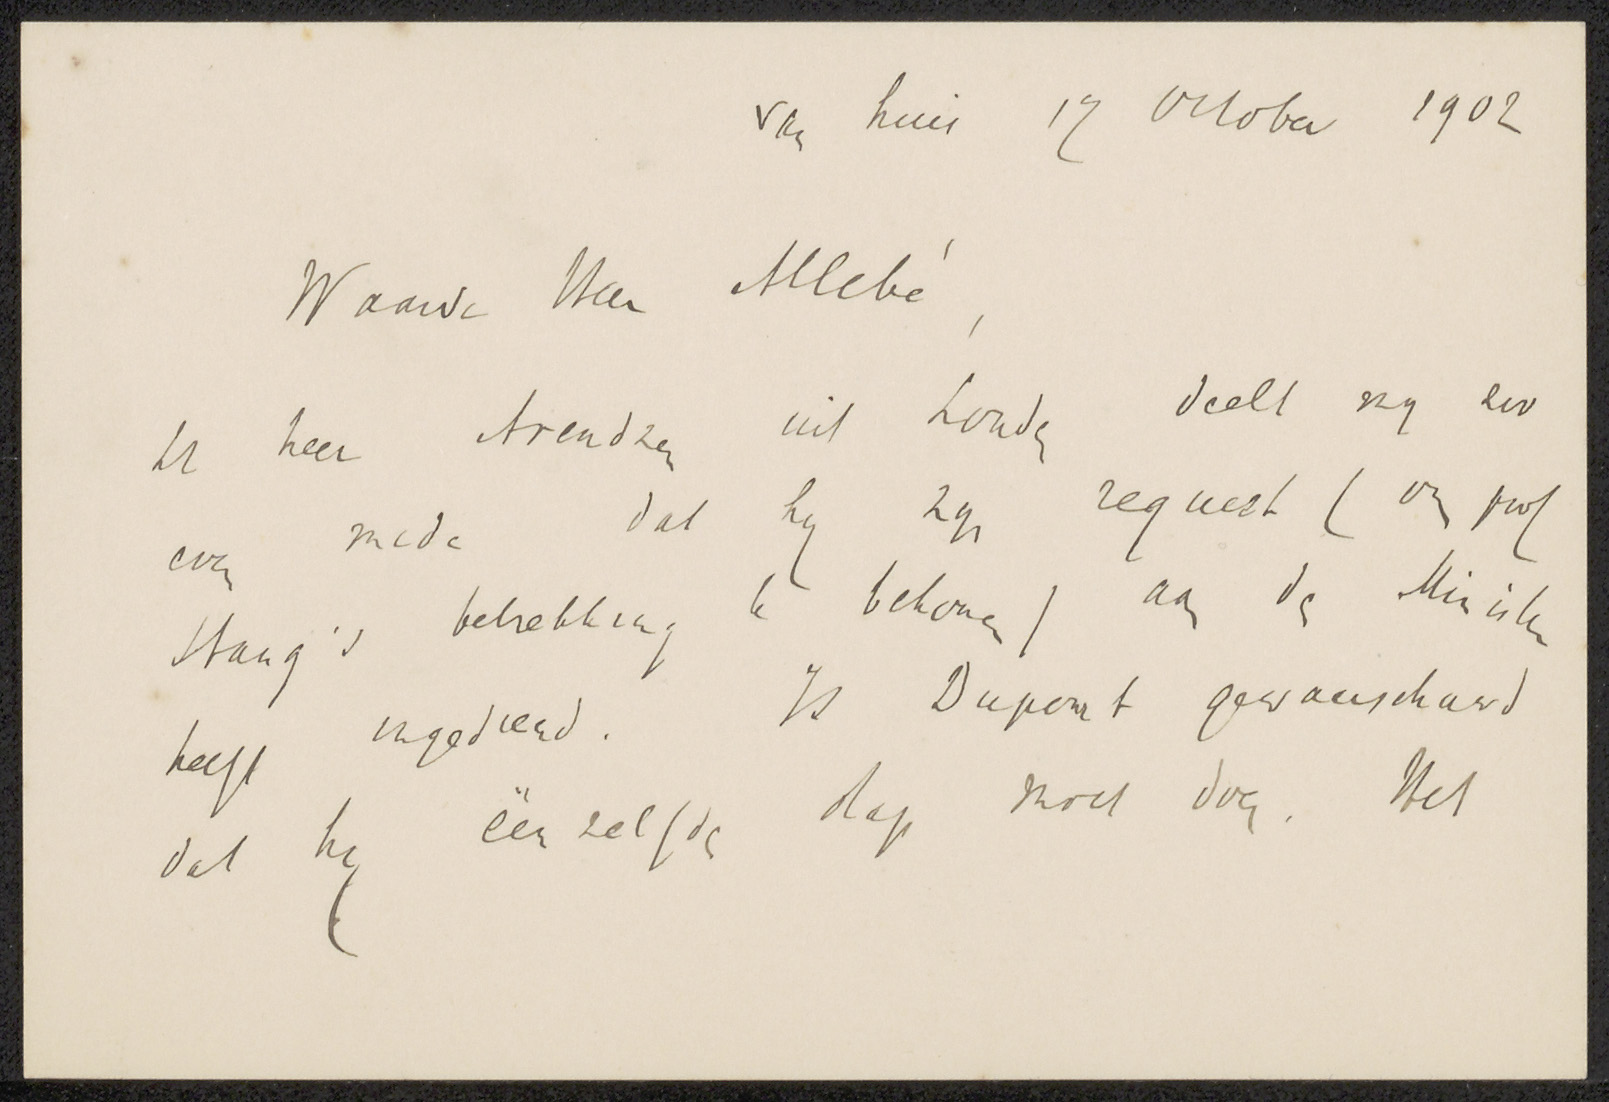 van huis 17 October 1902
Waarde Heer Allebé,
De heer Arendzen uit Londen deelt my zoo
even mede dat hy zyn request (om prof
Stang's betrekking te bekomen) aan den Minister
heeft ingediend. Is Dupont gewaarschuwd
dat hy ëenzelfden stap moet doen. Het